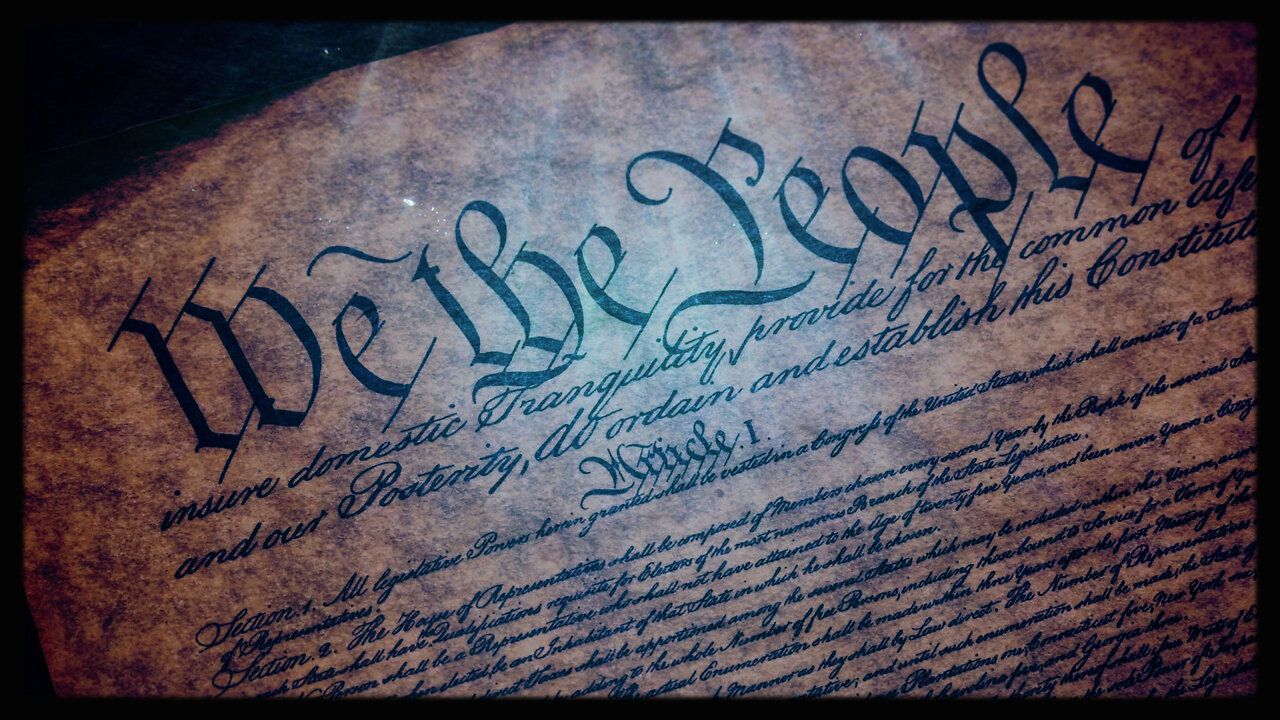 We the People of
insure domestic Tranquility, provide for the common defe
and our Posterity, do ordain and establish this Constituti
Article. I.
Section. 1. All legislative Powers herein granted shall be vested in a Congress of the United States, which shall consist of a Senat
of Representatives.
Section. 2. The House of Representatives shall be composed of Members chosen every second Year by the People of the several
State shall have the Qualifications requisite for Electors of the most numerous Branch of the State Legislature.
Person shall be a Representative who shall not have attained to the Age of twenty five Years, and been seven Years a Citize
when elected, be an Inhabitant of that State in which he shall be chosen.
direct Taxes shall be apportioned among the several States which may be included within this Union,
adding to the whole Number of free Persons, including those bound to Service for a Term of
actual Enumeration shall be made within three Years after the first Meeting of the
Manner as they shall by Law direct. The Number of Representatives
and until such enumeration shall be made, the State of
Plantations one, Connecticut five, New York
Carolina five, and Georgia three.